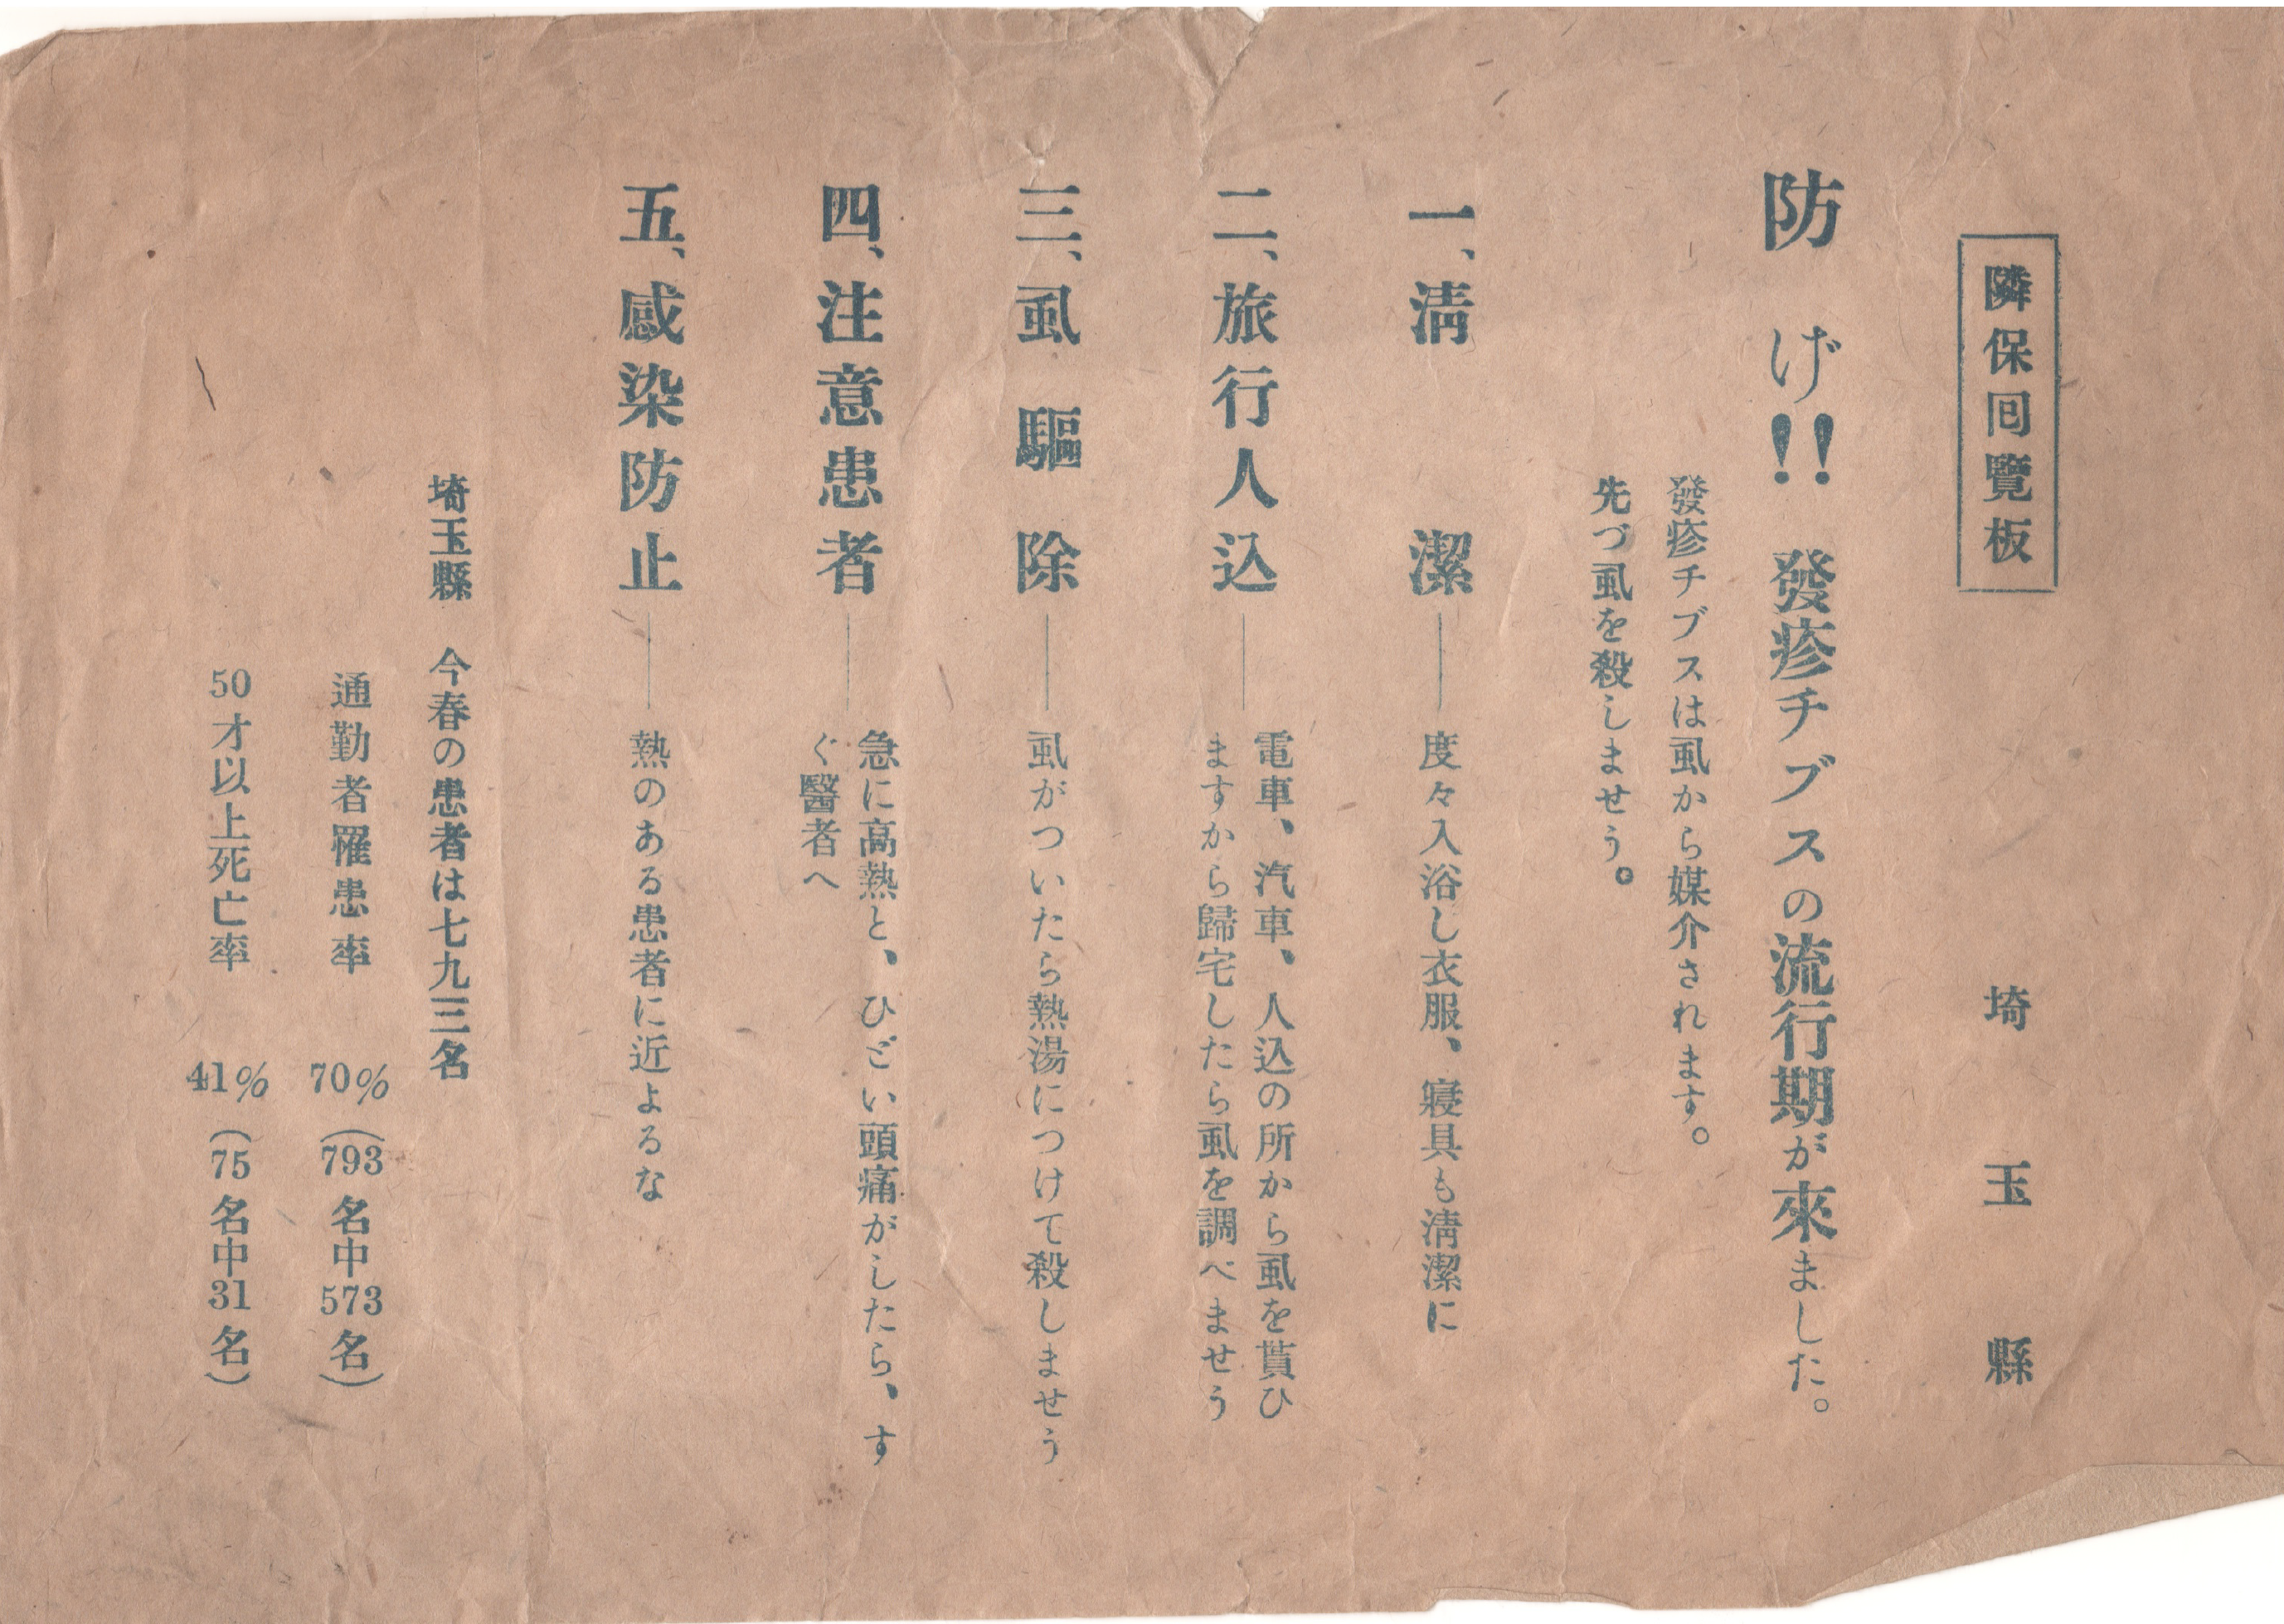 隣保囘覽板
埼玉縣
防げ!! 發疹チブスの流行期が來ました。
發疹チブスは虱から媒介されます。
先づ虱を殺しませう。
一、淸潔――度々入浴し衣服、寢具も淸潔に
二、旅行人込――電車、汽車、人込の所から虱を貰ひ
ますから歸宅したら虱を調べませう
三、虱驅除――虱がついたら熱湯につけて殺しませう
四、注意患者――急に高熱と、ひどい頭痛がしたら、す
ぐ醫者へ
五、感染防止――熱のある患者に近よるな
埼玉縣 今春の患者は七九三名
通勤者罹患率 70% (793名中573名)
50才以上死亡率 41% (75名中31名)